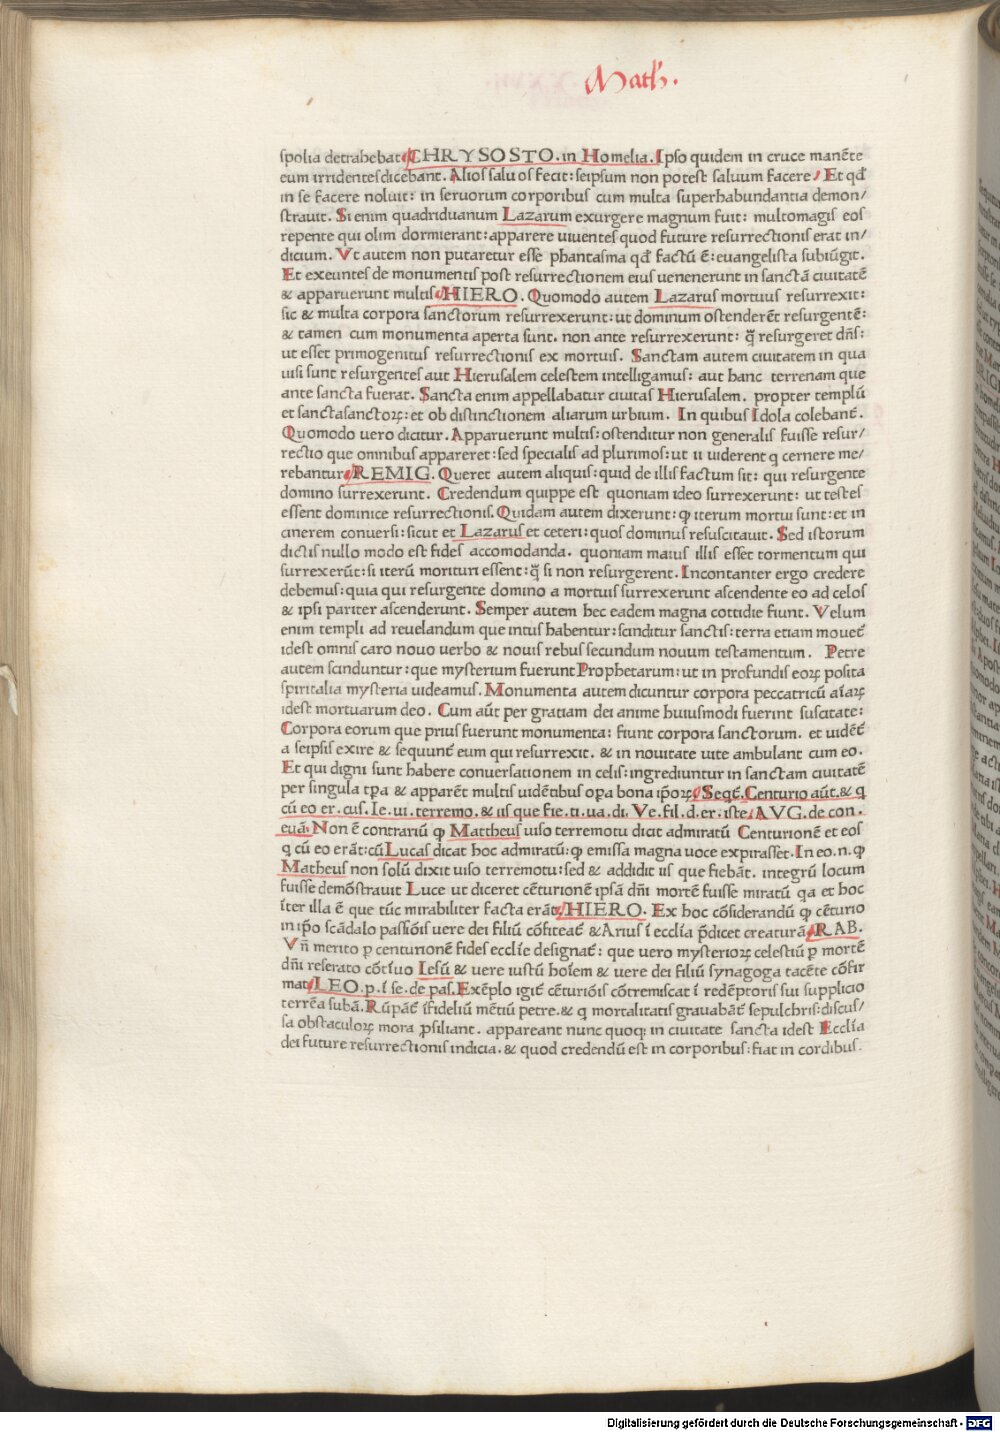 Math.
spolia detrahebat CHRYSOSTO. in Homelia. Ipso quidem in cruce manẽte
eum irridentes dicebant. Alios saluos fecit: seipsum non potest saluum facere / Et qđ
in se facere noluit: in seruorum corporibus cum multa superhabundantia demon/
strauit. Si enim quadriduanum Lazarum exurgere magnum fuit: multomagis eos
repente qui olim dormierant: apparere uiuentes quod future resurrectionis erat in/
dicium. Vt autem non putaretur esse phantasma qđ factũ ẽ: euangelista subiũgit.
Et exeuntes de monumentis post resurrectionem eius uenenerunt in sanctã ciuitatẽ
& apparuerunt multis HIERO. Quomodo autem Lazarus mortuus resurrexit:
sic & multa corpora sanctorum resurrexerunt: ut dominum ostenderẽt resurgentẽ:
& tamen cum monumenta aperta sunt. non ante resurrexerunt: q̃ resurgeret dñs:
ut esset primogenitus resurrectionis ex mortuis. Sanctam autem ciuitatem in qua
uisi sunt resurgentes aut Hierusalem celestem intelligamus: aut hanc terrenam que
ante sancta fuerat. Sancta enim appellabatur ciuitas Hierusalem. propter templũ
et sanctasanctoꝝ: et ob distinctionem aliarum urbium. In quibus Idola colebant̃.
Quomodo uero dicitur. Apparuerunt multis: ostenditur non generalis fuisse resur/
rectio que omnibus appareret: sed specialis ad plurimos: ut ii uiderent q cernere me/
rebantur REMIG. Queret autem aliquis: quid de illis factum sit: qui resurgente
domino surrexerunt. Credendum quippe est quoniam ideo surrexerunt: ut testes
essent dominice resurrectionis. Quidam autem dixerunt: ꝙ iterum mortui sunt: et in
cinerem conuersi: sicut et Lazarus et ceteri: quos dominus resuscitauit. Sed istorum
dictis nullo modo est fides accomodanda. quoniam maius illis esset tormentum qui
surrexerũt: si iterũ morituri essent: q̃ si non resurgerent. Incontanter ergo credere
debemus: quia qui resurgente domino a mortuis surrexerunt ascendente eo ad celos
& ipsi pariter ascenderunt. Semper autem hec eadem magna cottidie fiunt. Velum
enim templi ad reuelandum que intus habentur: scinditur sanctis: terra etiam mouet̃
idest omnis caro nouo uerbo & nouis rebus secundum nouum testamentum. Petre
autem scinduntur: que mysterium fuerunt Prophetarum: ut in profundis eoꝝ posita
spiritalia mysteria uideamus. Monumenta autem dicuntur corpora peccatricũ aĩaꝝ
idest mortuarum deo. Cum aũt per gratiam dei anime huiusmodi fuerint suscitate:
Corpora eorum que prius fuerunt monumenta: fiunt corpora sanctorum. et uidẽt̃
a seipsis exire & sequunt̃ eum qui resurrexit. & in nouitate uite ambulant cum eo.
Et qui digni sunt habere conuersationem in celis: ingrediuntur in sanctam ciuitatẽ
per singula tp̃a & apparẽt multis uidẽtibus op̃a bona ip̃oꝝ Seqt̃. Centurio aũt. & q
cũ eo er. cus. Ie. ui. terremo. & iis que fie. ti. ua. di. Ve. fil. d. er. iste AVG. de con.
euã. Non ẽ contrariũ ꝙ Mattheus uiso terremotu dicit admiratũ Centurionẽ et eos
q cũ eo erãt: cũ Lucas dicat hoc admiratũ: ꝙ emissa magna uoce expirasset. In eo. n. ꝙ
Matheus non solũ dixit uiso terremotu: sed & addidit iis que fiebãt. integrũ locum
fuisse demõstrauit Luce ut diceret cẽturionẽ ipsã dñi mortẽ fuisse miratũ qa et hoc
ĩter illa ẽ que tũc mirabiliter facta erãt HIERO. Ex hoc cõsiderandũ ꝙ cẽturio
in ip̃o scãdalo passiõis uere dei filiũ cõfiteat̃ & Arius ĩ ecclĩa p̃dicet creaturã RAB.
Vñ merito ꝑ centurionẽ fides ecclĩe designat̃: que uero mysterioꝝ celestiũ ꝑ mortẽ
dñi reserato cõtĩuo Iesũ & uere iustũ hoĩem & uere dei filiũ synagoga tacẽte cõfir
mat LEO. p. ĩ se. de pas. Exẽplo igit̃ cẽturiõis cõtremiscat ĩ redẽptoris sui supplicio
terrẽa subã. Rũpãt̃ ĩfideliũ mẽtiũ petre. & q mortalitatis grauabãt̃ sepulchris: discus/
sa obstaculoꝝ mora ꝓsiliant. appareant nunc quoqꝫ in ciuitate sancta idest Ecclĩa
dei future resurrectionis indicia. & quod credendũ est in corporibus: fiat in cordibus.
Digitalisierung gefördert durch die Deutsche Forschungsgemeinschaft - DFG